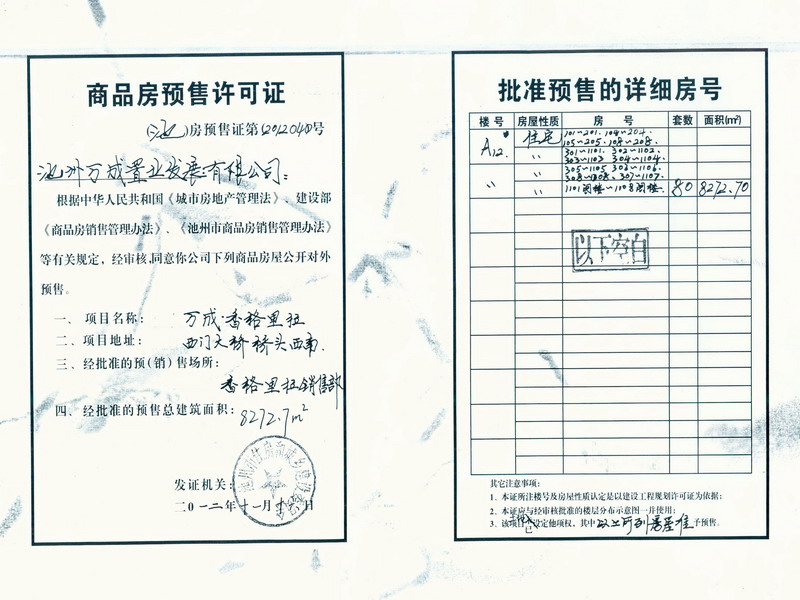 商品房预售许可证
（池）房预售证第(2012040)号
池州万成置业发展有限公司：
根据中华人民共和国《城市房地产管理法》、建设部
《商品房销售管理办法》、《池州市商品房销售管理办法》
等有关规定，经审核,同意你公司下列商品房屋公开对外
预售。
一、项目名称： 万成·香格里拉
二、项目地址： 西门大桥桥头西南.
三、经批准的预（销）售场所：
香格里拉销售部
四、经批准的预售总建筑面积：8272.7m²
发证机关：
二〇一二年十一月
日
批准预售的详细房号
楼号 房屋性质 房号 套数 面积(m²)
A12. 住宅 101~201. 104~204.
105~205. 108~208.
〃 301~1101. 302~1102.
303~1103 304~1104.
〃 305~1105 306~1106.
308~1108. 307~1107.
〃 〃 1101阁楼~1108阁楼. 80 8272.70
以下空白
其它注意事项：
1．本证所注楼号及房屋性质认定是以建设工程规划许可证为依据；
2．本证应与经审核批准的楼层分布示意图一并使用；
3．该项目 已 设定他项权，其中以上所列房屋准予预售．